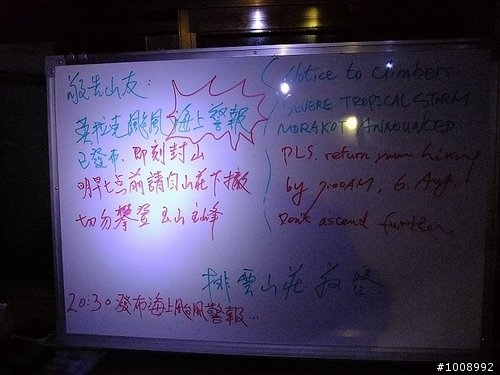 敬告山友:
莫拉克颱風海上警報
已發布. 即刻封山
明早七点前請自山莊下撤
切勿攀登玉山主峰
Notice to Climbers:
SEVERE TROPICAL STORM
MORAKOT ANNOUNCED.
PLS. return your hiring
by 7:00AM, 6. Aug.
Don't ascend further.
排雲山莊 敬啓
20:30 發布海上颱風警報...
#1008992